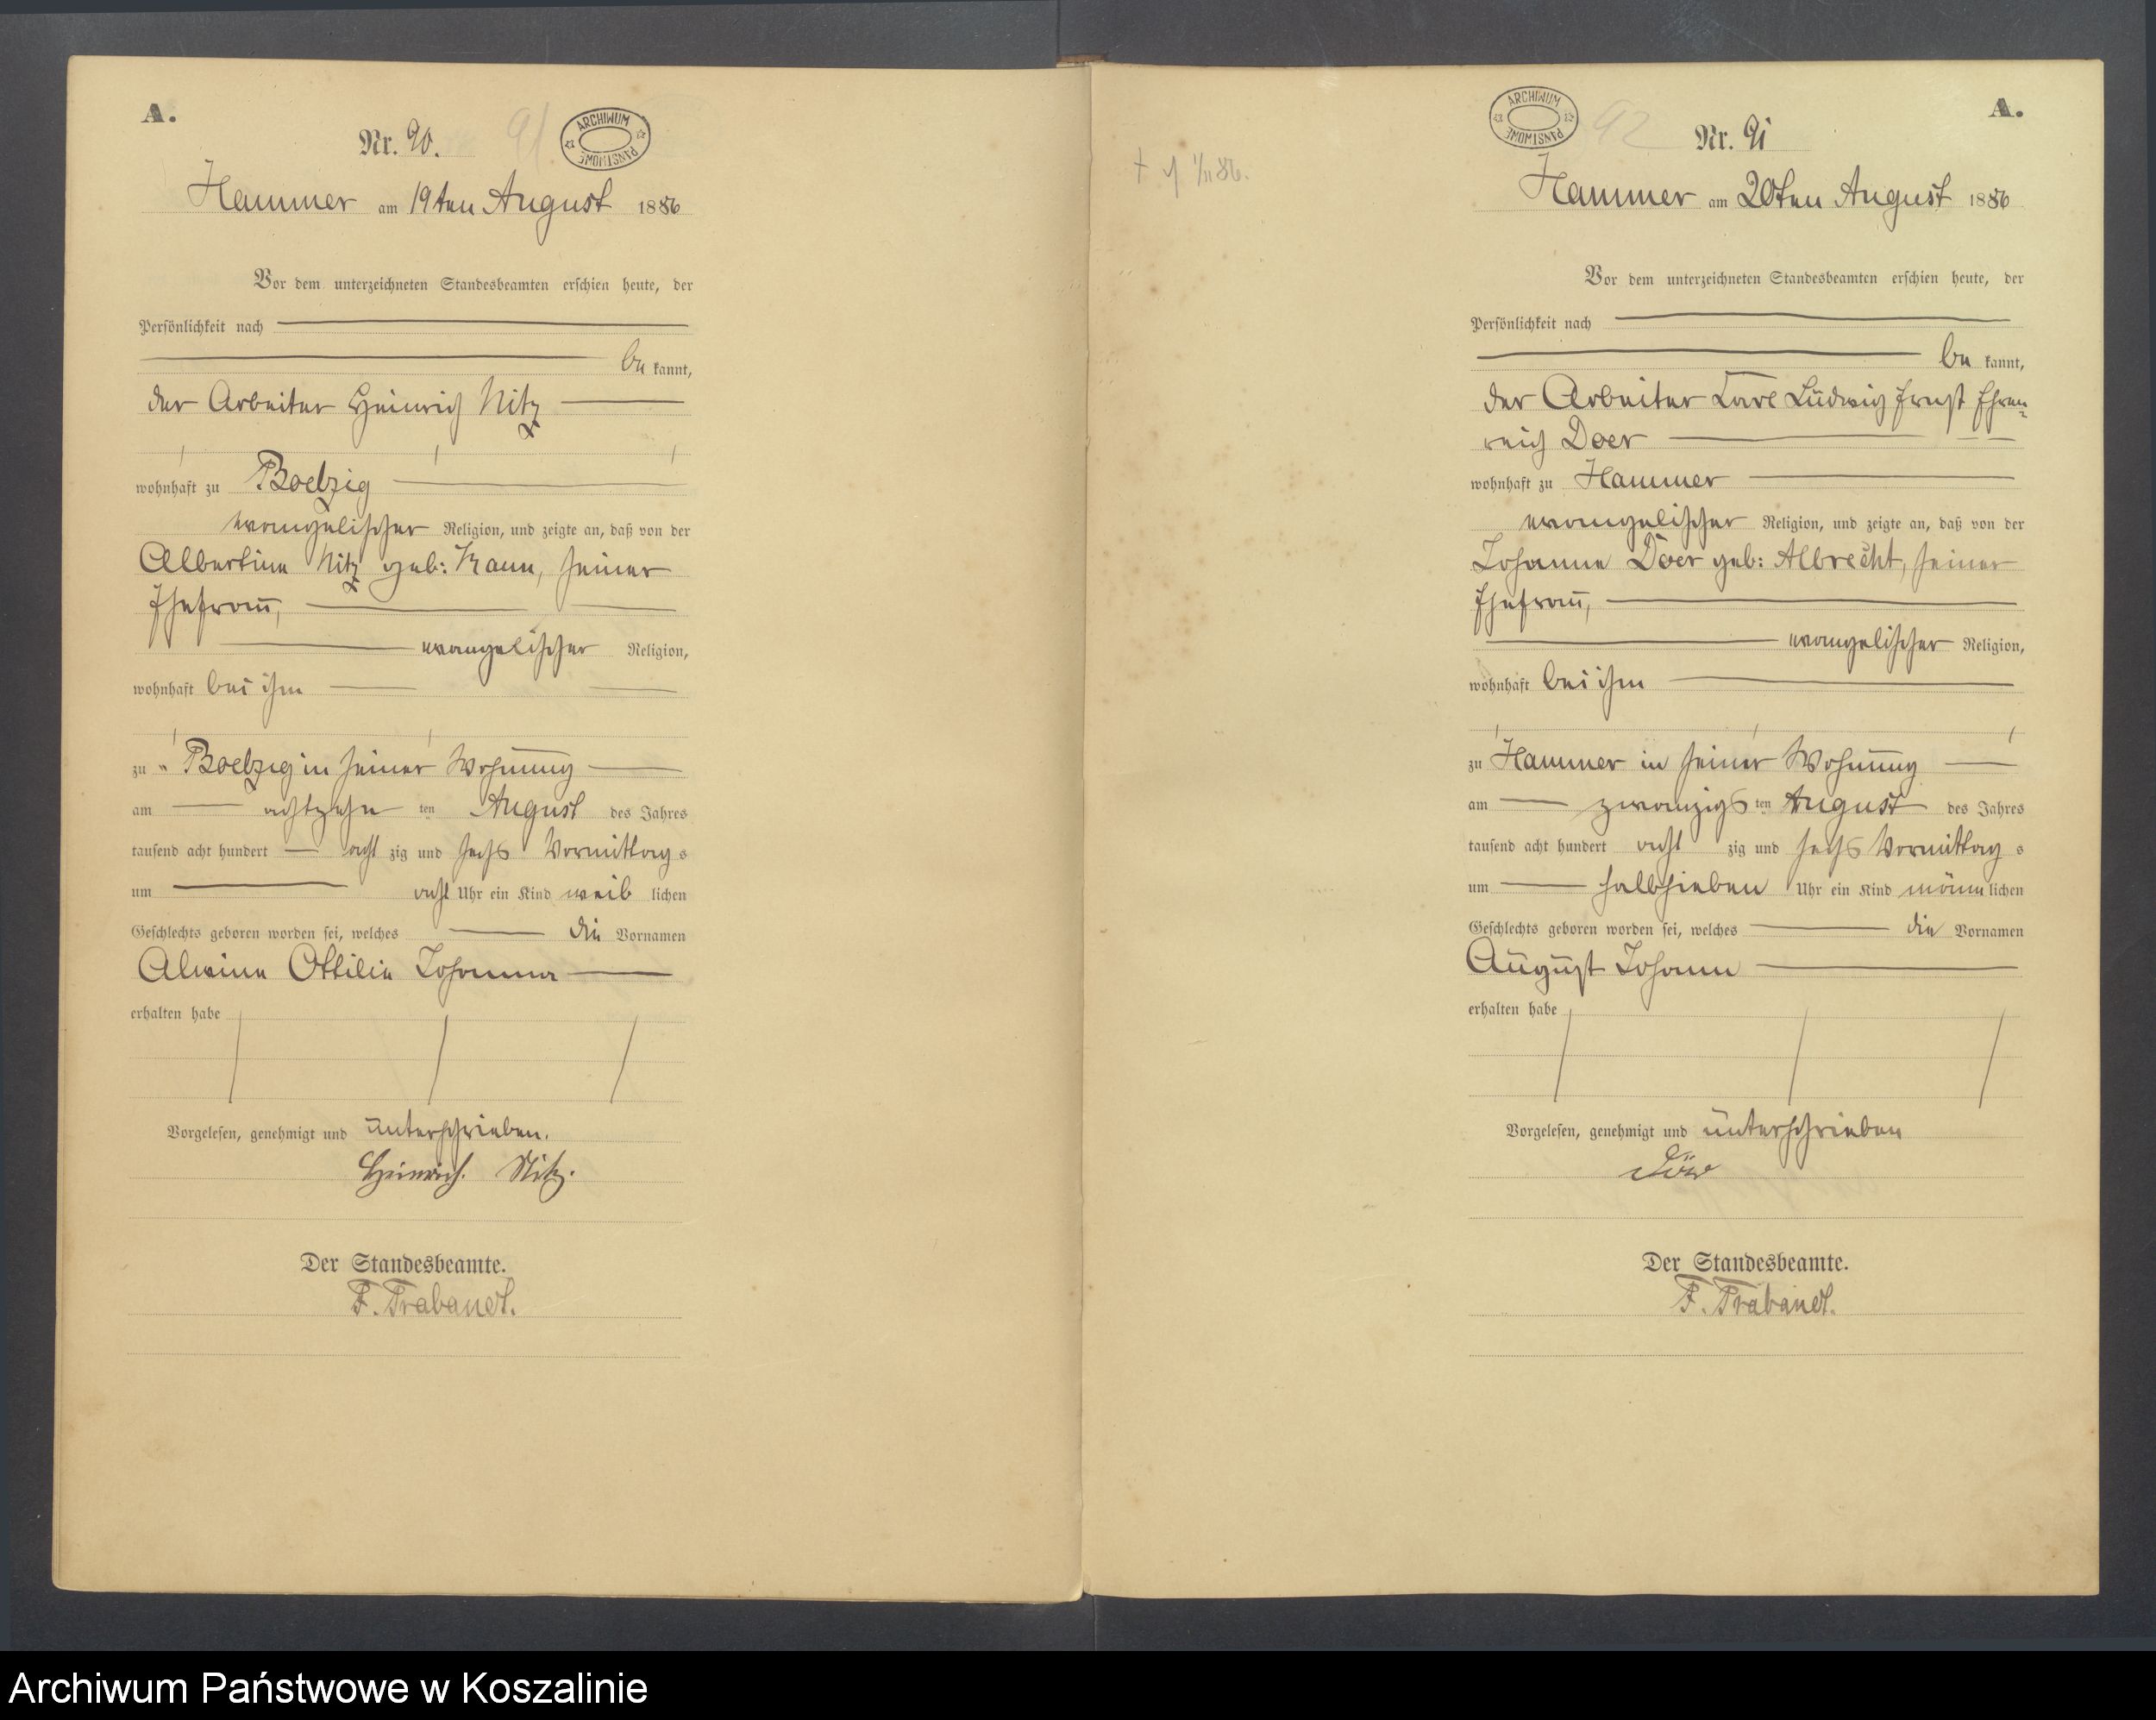 A.
Nr. 90.
91.
ARCHIWUM PAŃSTWOWE
Hammer am 19ten August 1886
Vor dem unterzeichneten Standesbeamten erschien heute, der
Persönlichkeit nach
be kannt,
der Arbeiter Heinrich Nitz
wohnhaft zu Boelzig
evangelischer Religion, und zeigte an, daß von der
Albertine Nitz geb: , seiner
Ehefrau,
evangelischer Religion,
wohnhaft bei ihm
zu Boelzig in seiner Wohnung
am achtzehn ten August des Jahres
tausend acht hundert acht zig und sechs Vormittag s
um acht Uhr ein Kind weib lichen
Geschlechts geboren worden sei, welches die Vornamen
Alwine Ottilie Johanna
erhalten habe
Vorgelesen, genehmigt und unterschrieben.
Heinrich. Nitz.
Der Standesbeamte.
F. Trabandt.
A.
ARCHIWUM PAŃSTWOWE
92
Nr. 91
Hammer am 20ten August 1886
Vor dem unterzeichneten Standesbeamten erschien heute, der
Persönlichkeit nach
be kannt,
der Arbeiter Carl Ludwig Ernst Ehren=
reich Doer
wohnhaft zu Hammer
evangelischer Religion, und zeigte an, daß von der
Johanne Doer geb: Albrecht, seiner
Ehefrau,
evangelischer Religion,
wohnhaft bei ihm
zu Hammer in seiner Wohnung
am zwanzigs ten August des Jahres
tausend acht hundert acht zig und sechs Vormittag s
um halb sieben Uhr ein Kind männ lichen
Geschlechts geboren worden sei, welches die Vornamen
August Johann
erhalten habe
Vorgelesen, genehmigt und unterschrieben
Döer
Der Standesbeamte.
F. Trabandt.
Archiwum Państwowe w Koszalinie